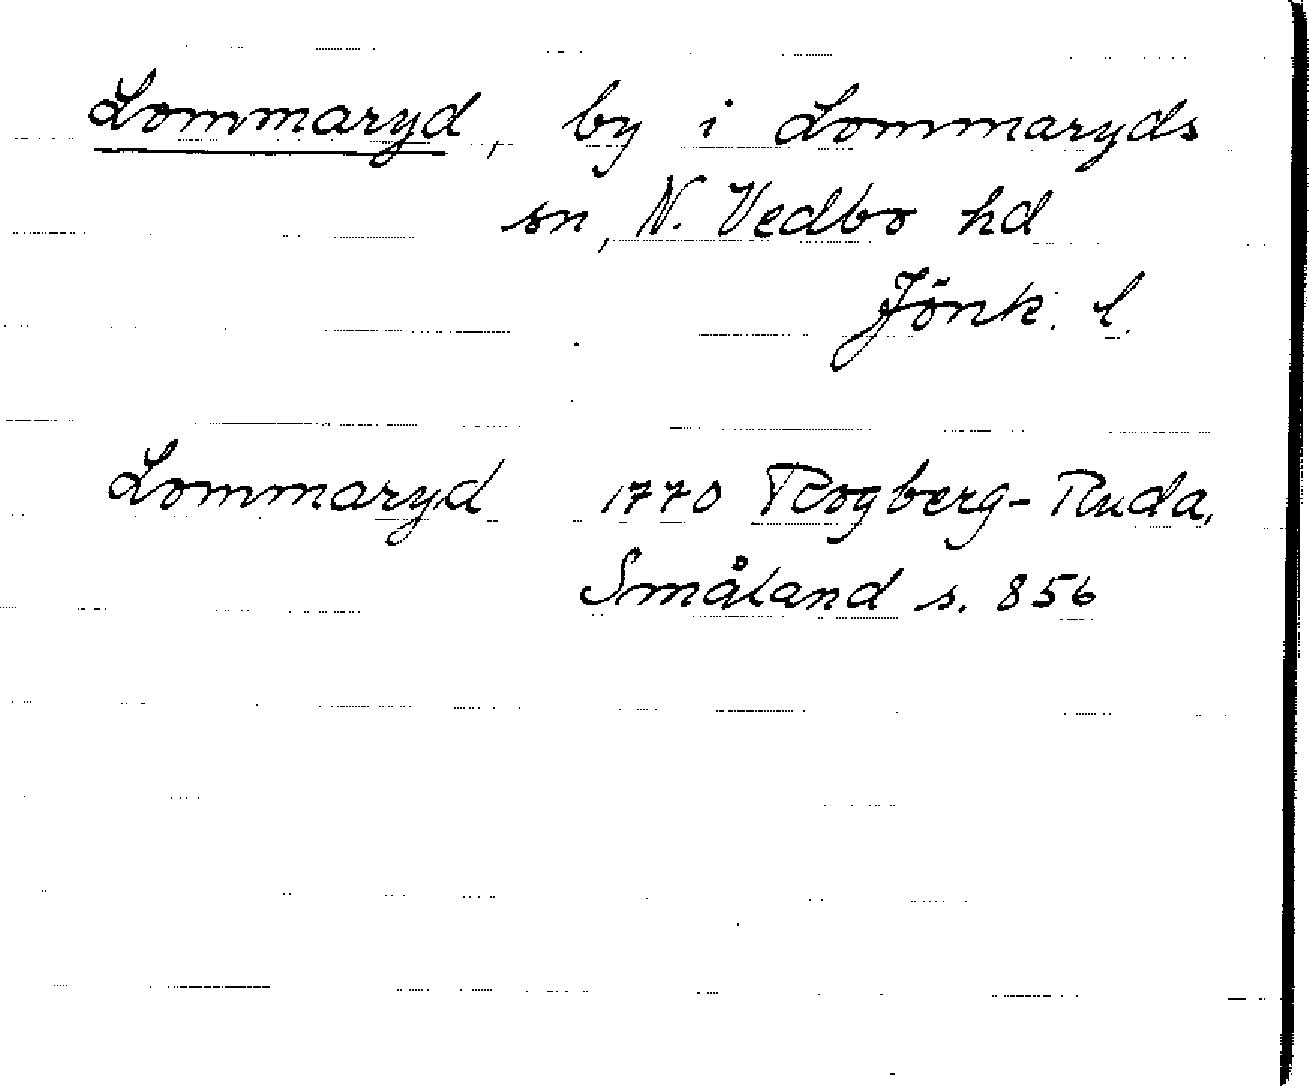 Lommaryd, by i Lommaryds
sn, N. Vedbo hd
Jönk. l.
Lommaryd 1770 Rogberg-Ruda,
Småland s. 856